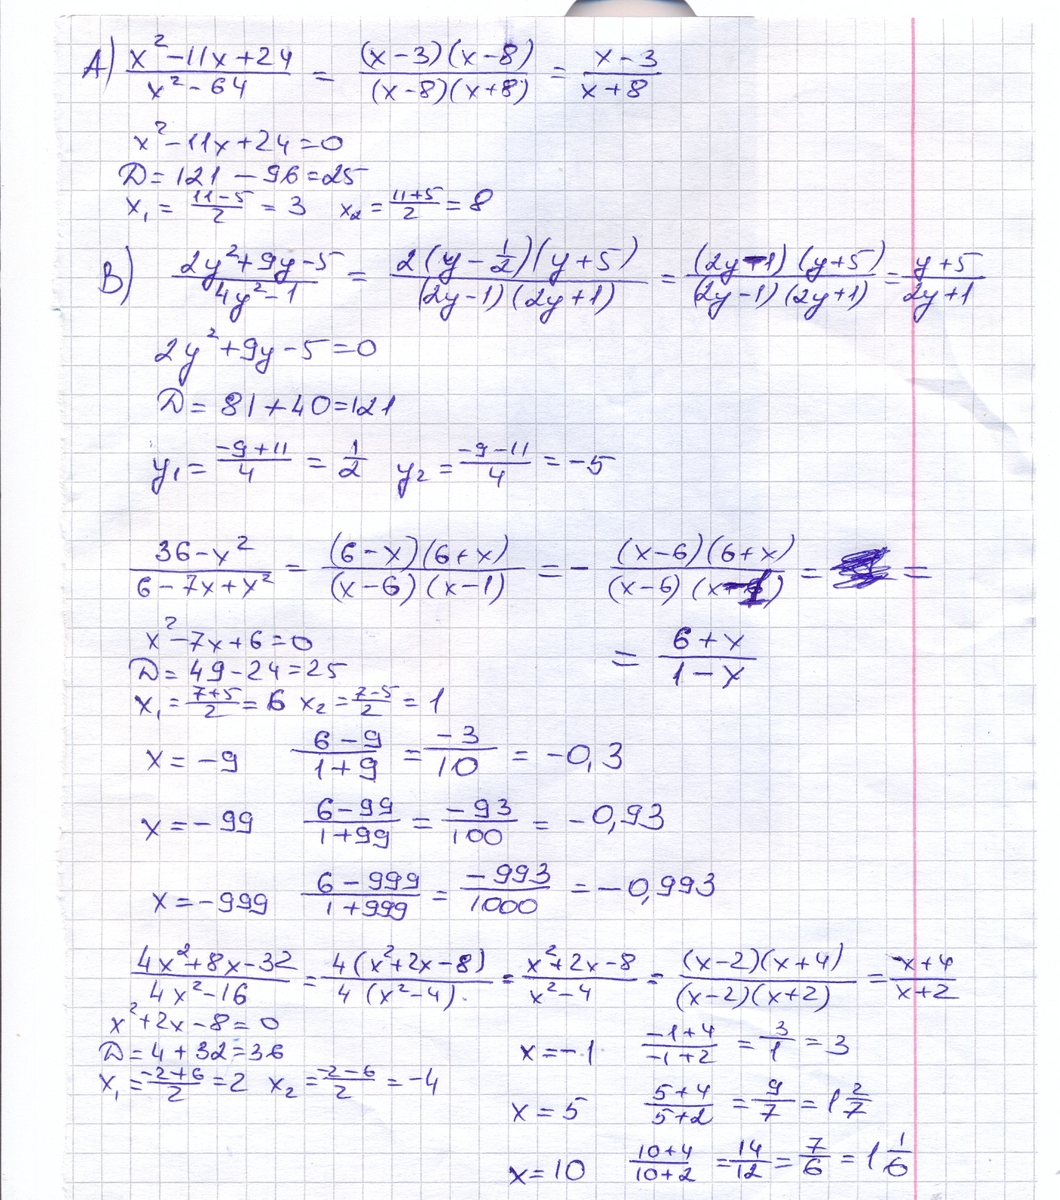 A) (x²-11x+24)/(x²-64) = ((x-3)(x-8))/((x-8)(x+8)) = (x-3)/(x+8)
x²-11x+24=0
D=121-96=25
x₁=(11-5)/2=3 x₂=(11+5)/2=8
B) (2y²+9y-5)/(4y²-1) = (2(y-1/2)(y+5))/((2y-1)(2y+1)) = ((2y-1)(y+5))/((2y-1)(2y+1)) = (y+5)/(2y+1)
2y²+9y-5=0
D=81+40=121
y₁=(-9+11)/4=1/2 y₂=(-9-11)/4=-5
(36-x²)/(6-7x+x²) = ((6-x)(6+x))/((x-6)(x-1)) = -((x-6)(6+x))/((x-6)(x-1)) = =
= (6+x)/(1-x)
x²-7x+6=0
D=49-24=25
x₁=(7+5)/2=6 x₂=(7-5)/2=1
x=-9 (6-9)/(1+9)=(-3)/10=-0,3
x=-99 (6-99)/(1+99)=(-93)/100=-0,93
x=-999 (6-999)/(1+999)=(-993)/1000=-0,993
(4x²+8x-32)/(4x²-16) = (4(x²+2x-8))/(4(x²-4)) = (x²+2x-8)/(x²-4) = ((x-2)(x+4))/((x-2)(x+2)) = (x+4)/(x+2)
x²+2x-8=0
D=4+32=36
x₁=(-2+6)/2=2 x₂=(-2-6)/2=-4
x=-1 (-1+4)/(-1+2)=3/1=3
x=5 (5+4)/(5+2)=9/7=1 2/7
x=10 (10+4)/(10+2)=14/12=7/6=1 1/6